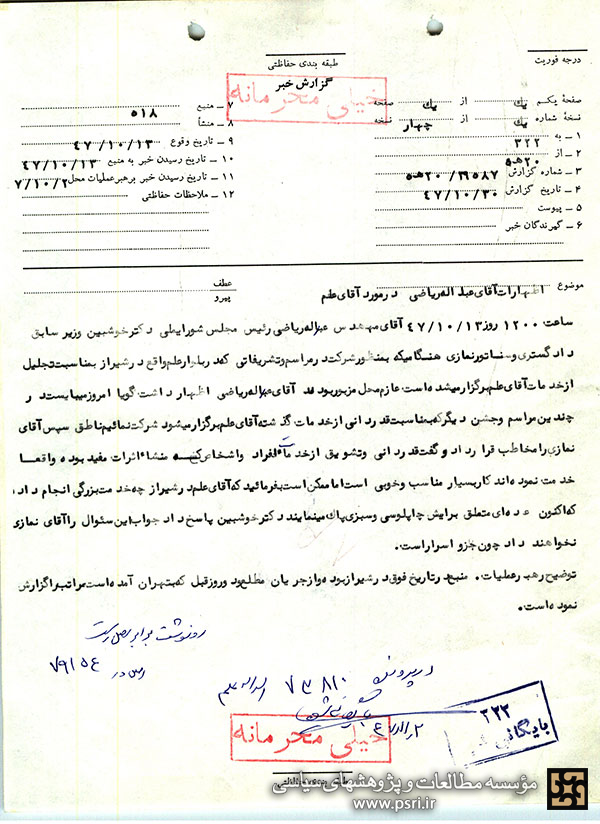 درجه فوریت
طبقه بندی حفاظتی
گزارش خبر
خیلی محرمانه
صفحهٔ یکم یك از یك صفحه
نسخهٔ شماره یك از چهار نسخه
۱ – به ۳۲۲
۲ – از ۲۰ هـ ۵
۳ – شماره گزارش ۱۹۵۸۷ / ۲۰ هـ ۵
۴ – تاریخ گزارش ۴۷/۱۰/۳۰
۵ – پیوست
۶ – گیرندگان خبر
۷ – منبع ۵۱۸
۸ – منشأ
۹ – تاریخ وقوع ۴۷/۱۰/۱۳
۱۰ – تاریخ رسیدن خبر به منبع ۴۷/۱۰/۱۳
۱۱ – تاریخ رسیدن خبر برهبر عملیات محل ۷/۱۰/۲
۱۲ – ملاحظات حفاظتی
موضوع اظهارات آقای عبداله ریاضی در مورد آقای علم
عطف
پیرو
ساعت ۱۲۰۰ روز ۴۷/۱۰/۱۳ آقای مهندس عبداله ریاضی رئیس مجلس شورایملی دکتر خوشبین وزیر سابق
دادگستری و سناتور نمازی هنگامیکه بمنظور شرکت در مراسم و تشریفاتی که در بلوار علم واقع در شیراز بمناسبت تجلیل
از خدمات آقای علم برگزار میشده است عازم محل مزبور بودند آقای عبداله ریاضی اظهار داشت گویا امروز میبایست در
چندین مراسم و جشن دیگر که بمناسبت قدردانی از خدمات گذشته آقای علم برگزار میشود شرکت نمائیم ناطق سپس آقای
نمازی را مخاطب قرار داد و گفت قدردانی و تشویق از خدمات افراد و اشخاصی که منشاء اثرات مفید بوده و واقعا
خدمت نموده اند کار بسیار مناسب و خوبی است اما ممکن است بفرمائید که آقای علم در شیراز چه خدمت بزرگی انجام داده
که اکنون عده ای متعلق برایش چاپلوسی و سبزی پاك مینمایند دکتر خوشبین پاسخ داد جواب این سئوال را آقای نمازی
نخواهند داد چون جزو اسرار است.
توضیح رهبر عملیات. منبع در تاریخ فوق در شیراز بوده و از جریان مطلع و دو روز قبل که بتهران آمده است مراتب را گزارش
نموده است.
رونوشت برابر اصل است
اصل در ۷۹۱۵۴
در پرونده ۷۳۸۱۰ اسداله علم
بایگانی شود
۳۲۲
بایگانی شد
خیلی محرمانه
مؤسسه مطالعات و پژوهشهای سیاسی
www.psri.ir